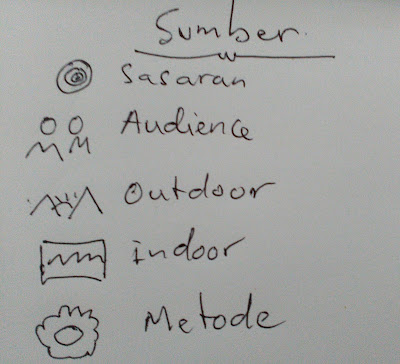 Sumber.
Sasaran
Audience
Outdoor
indoor
Metode